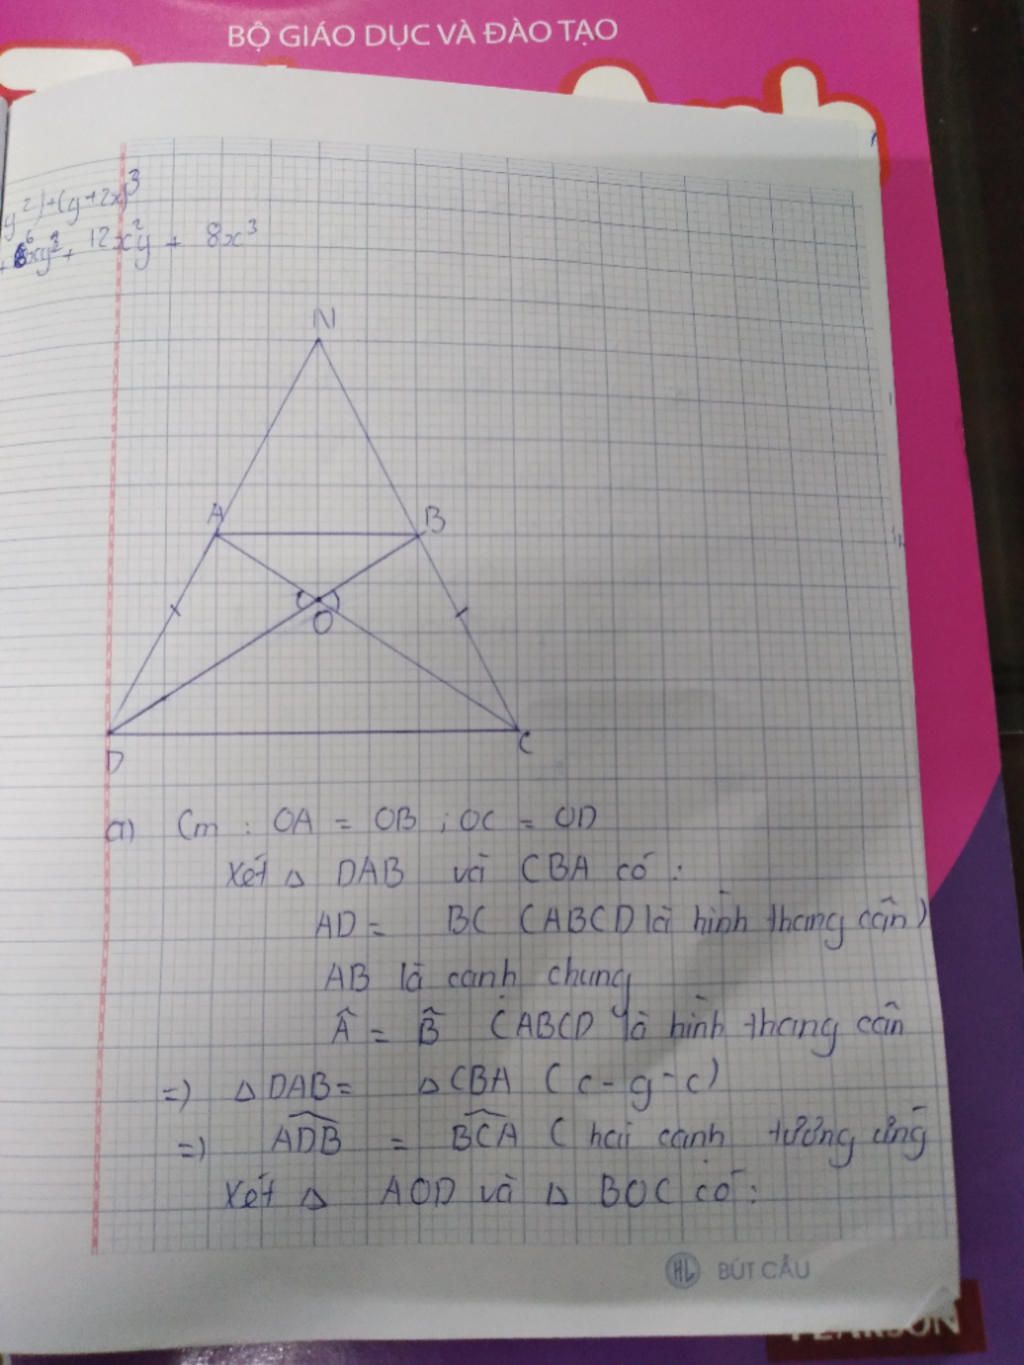 BỘ GIÁO DỤC VÀ ĐÀO TẠO
y²)+(y+2x)³
+ 6xy² + 12x²y + 8x³
N
A
B
O
D
C
a) Cm : OA = OB ; OC = OD
Xét △ DAB và CBA có :
AD = BC (ABCD là hình thang cân)
AB là cạnh chung
Â = B̂ (ABCD là hình thang cân
=) △ DAB = △ CBA (c-g-c)
=) ADB = BCA ( hai cạnh tương ứng
Xét △ AOD và △ BOC có :
HL BÚT CẦU
PEARSON